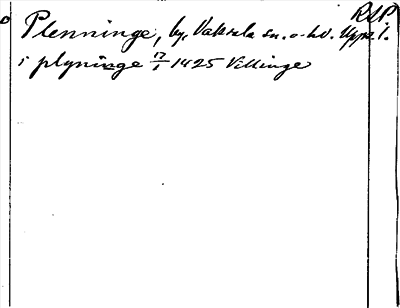 RSP
Plenninge, by, Vaksala sn. o. hd. Upps. l.
i plyninge 17/1 1425 Villinge